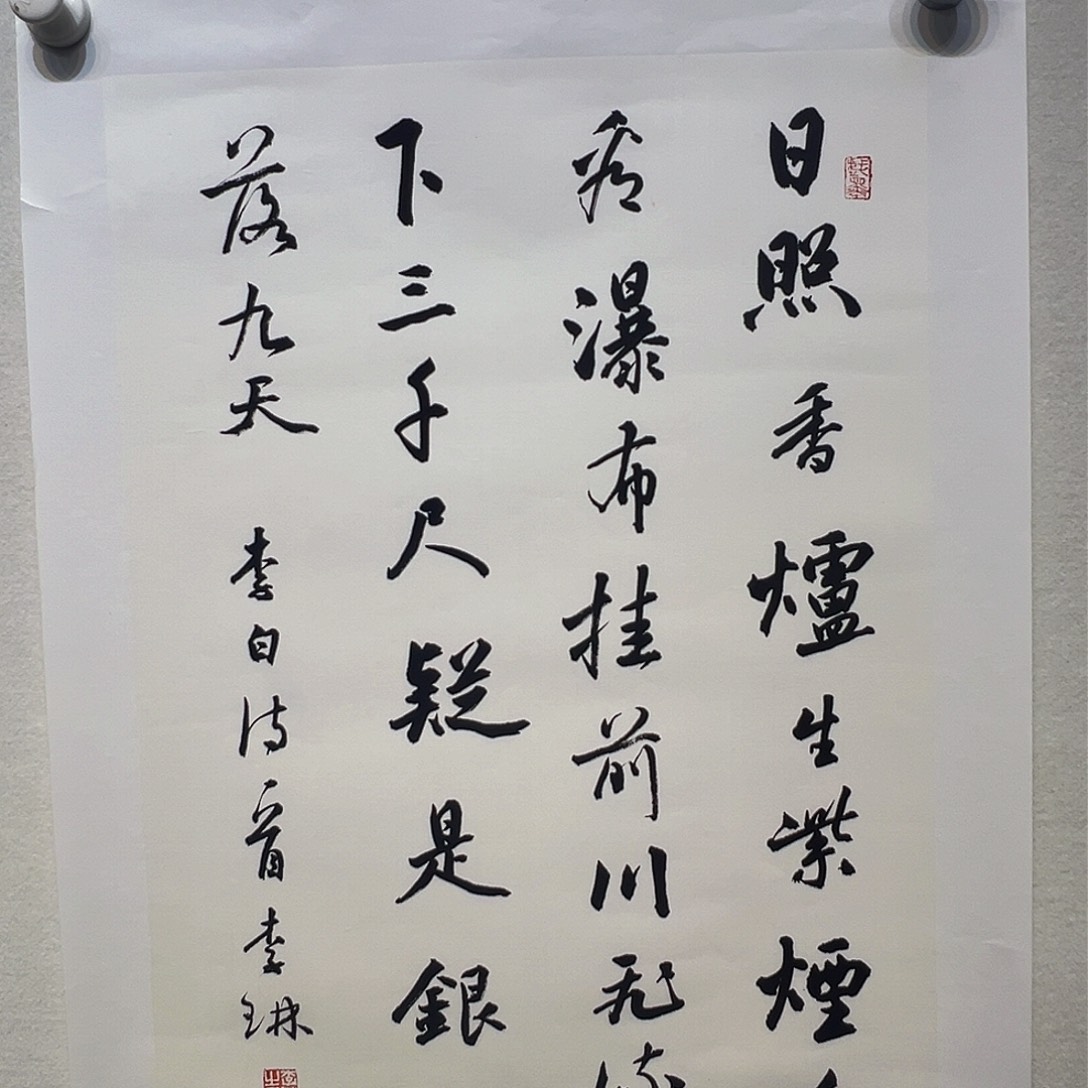 日照香爐生紫煙
看瀑布挂前川飛流
下三千尺疑是銀
落九天 李白詩一首 李琳